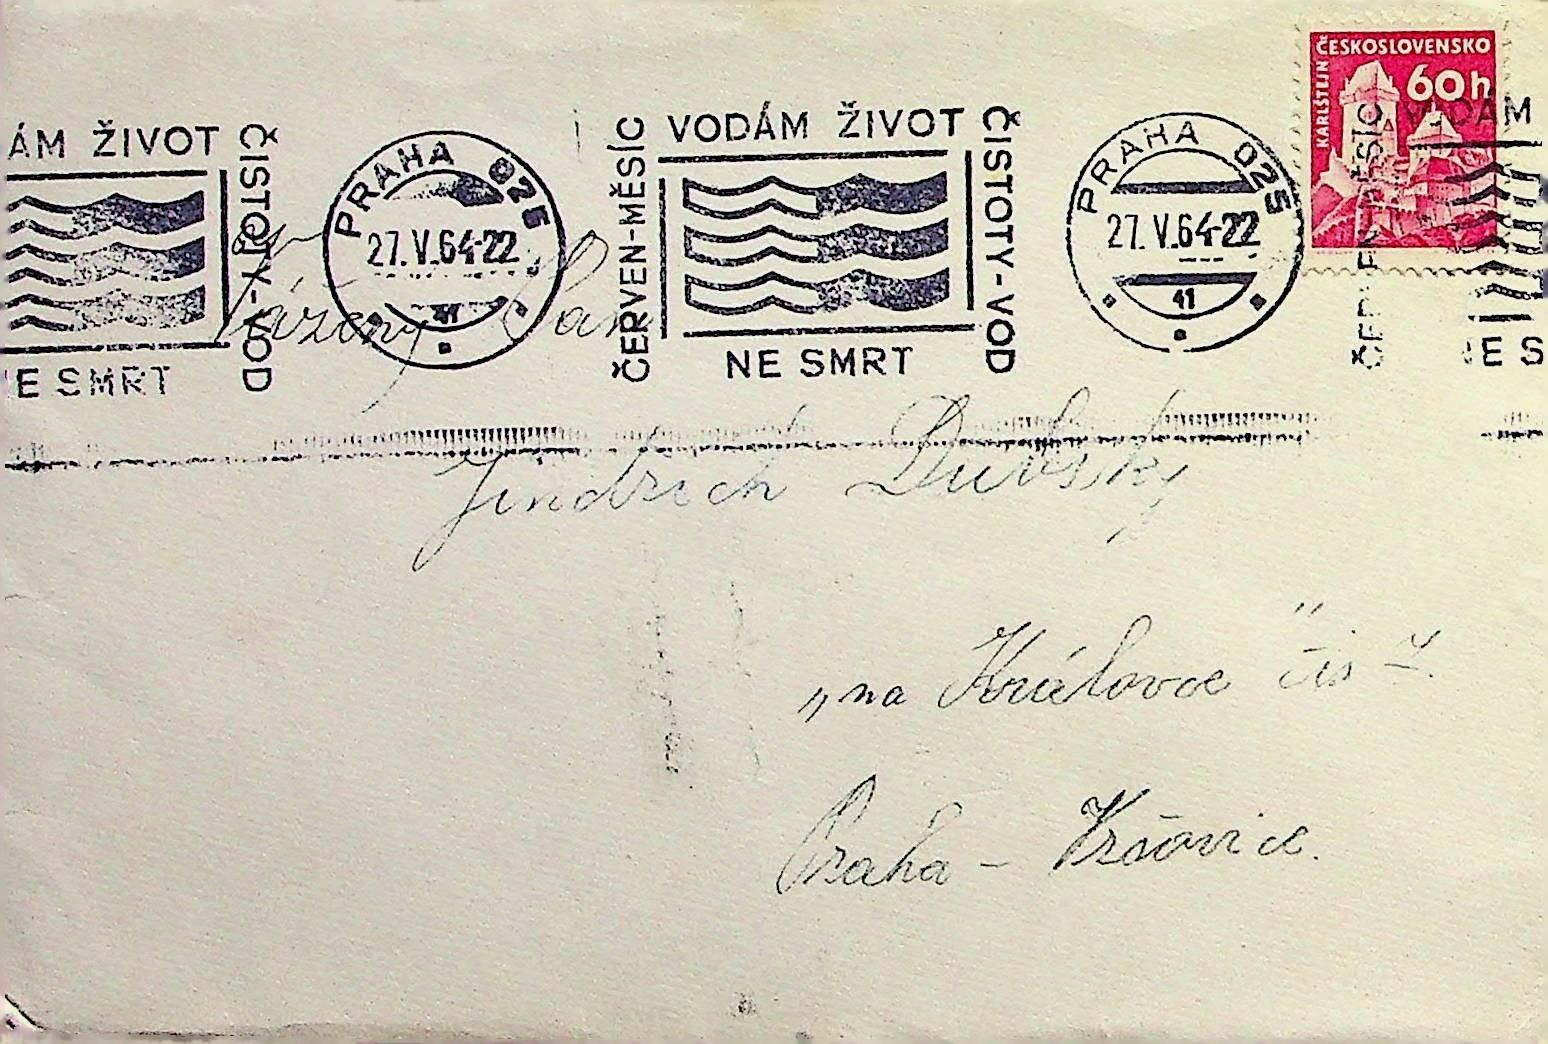 ČESKOSLOVENSKO
KARLŠTEJN
60h
ÁM ŽIVOT
ČISTOTY-VOD
E SMRT
PRAHA 025
27.V.64-22
41
ČERVEN-MĚSÍC
VODÁM ŽIVOT
ČISTOTY-VOD
NE SMRT
PRAHA 025
27.V.64-22
41
ČERVEN-MĚSÍC
VODÁM
NE S
Vážený Pan
Jindrich Duvský
„na Královce" čis
Praha - Vršovice.